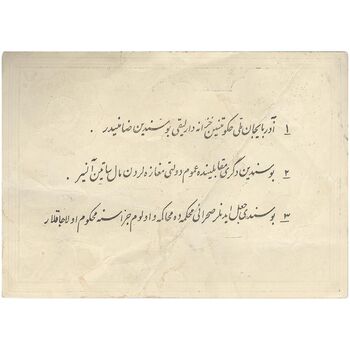 ۱ آذربایجان ملی حکومتینین خزانه دارلیقی بو سندین ضامنیدر .
۲ بو سندین دگری مقابلینده عموم دولتی مغازه لردن مال ساتین آلنیر .
۳ بو سندی جعل ایدنلر صحرائی محکمه ده محاکمه و اولوم جزاسنه محکوم اولاجاقلار